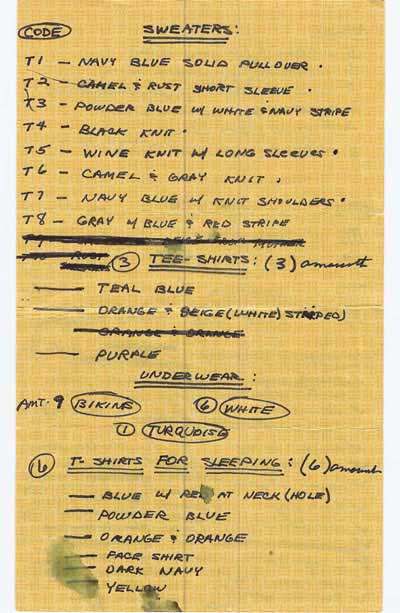 CODE SWEATERS:
T1 - NAVY BLUE SOLID PULLOVER.
T2 - CAMEL & RUST SHORT SLEEVE.
T3 - POWDER BLUE W/ WHITE & NAVY STRIPE
T4 - BLACK KNIT.
T5 - WINE KNIT W/ LONG SLEEVES.
T6 - CAMEL & GRAY KNIT.
T7 - NAVY BLUE W/ KNIT SHOULDERS.
T8 - GRAY W/ BLUE & RED STRIPE
MOTHER
RUST
3 TEE-SHIRTS: (3) amount
— TEAL BLUE
— ORANGE & BEIGE (WHITE) STRIPED)
ORANGE & ORANGE
— PURPLE
UNDERWEAR:
AMT. 9 BIKINE 6 WHITE
1 TURQUOISE
6 T-SHIRTS FOR SLEEPING: (6) amount
— BLUE W/ RED AT NECK (HOLE)
— POWDER BLUE
— ORANGE & ORANGE
— FACE SHIRT
— DARK NAVY
— YELLOW